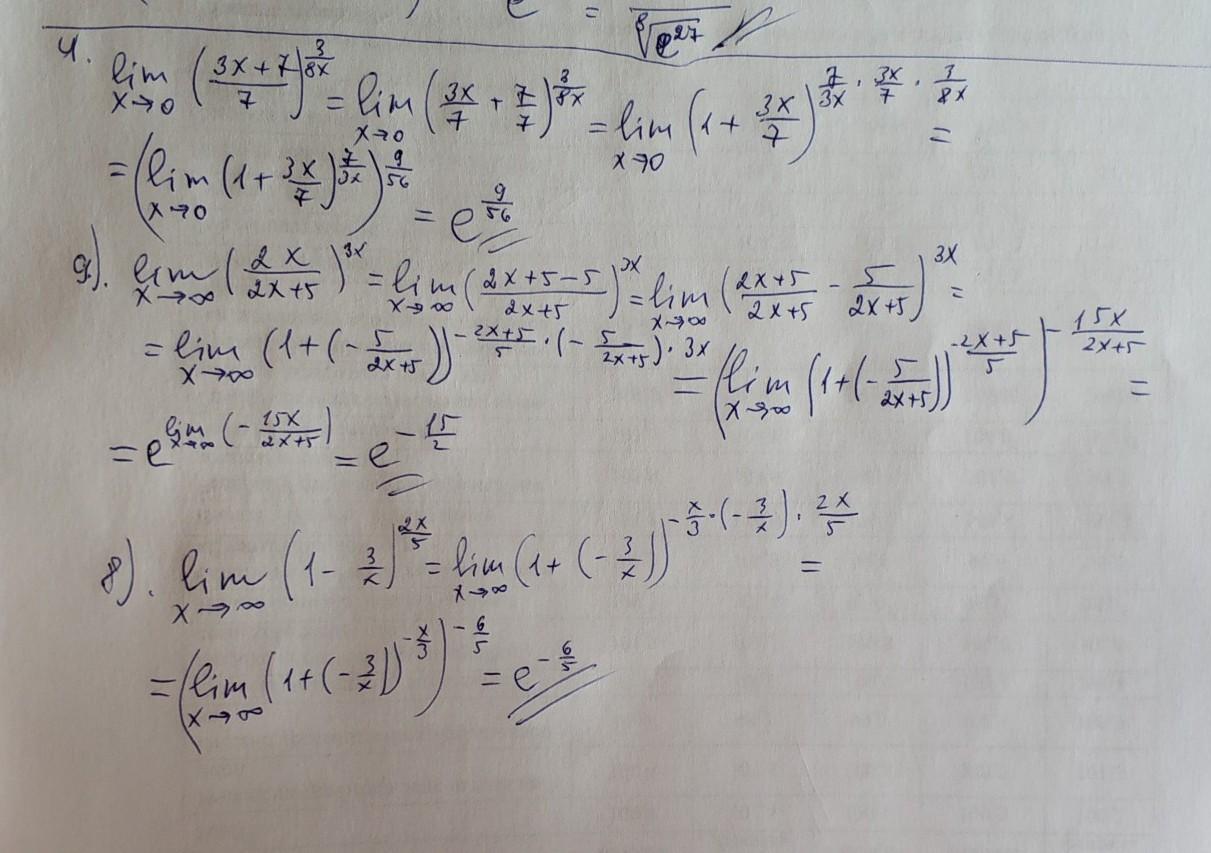 e = \frac{}{\sqrt[8]{e^{27}}}
4. \lim_{x→0} (\frac{3x+7}{7})^{\frac{3}{8x}} = \lim_{x→0} (\frac{3x}{7} + \frac{7}{7})^{\frac{3}{8x}} = \lim_{x→0} (1 + \frac{3x}{7})^{\frac{7}{3x} · \frac{3x}{7} · \frac{3}{8x}} =
= (\lim_{x→0} (1 + \frac{3x}{7})^{\frac{7}{3x}})^{\frac{9}{56}} = e^{\frac{9}{56}}
9). \lim_{x→∞} (\frac{2x}{2x+5})^{3x} = \lim_{x→∞} (\frac{2x+5-5}{2x+5})^{3x} = \lim_{x→∞} (\frac{2x+5}{2x+5} - \frac{5}{2x+5})^{3x} =
= \lim_{x→∞} (1 + (-\frac{5}{2x+5}))^{-\frac{2x+5}{5} · (-\frac{5}{2x+5}) · 3x} = (\lim_{x→∞} (1 + (-\frac{5}{2x+5}))^{-\frac{2x+5}{5}})^{-\frac{15x}{2x+5}} =
= e^{\lim_{x→∞} (-\frac{15x}{2x+5})} = e^{-\frac{15}{2}}
8). \lim_{x→∞} (1 - \frac{3}{x})^{\frac{2x}{5}} = \lim_{x→∞} (1 + (-\frac{3}{x}))^{-\frac{x}{3} · (-\frac{3}{x}) · \frac{2x}{5}} =
= (\lim_{x→∞} (1 + (-\frac{3}{x}))^{-\frac{x}{3}})^{-\frac{6}{5}} = e^{-\frac{6}{5}}